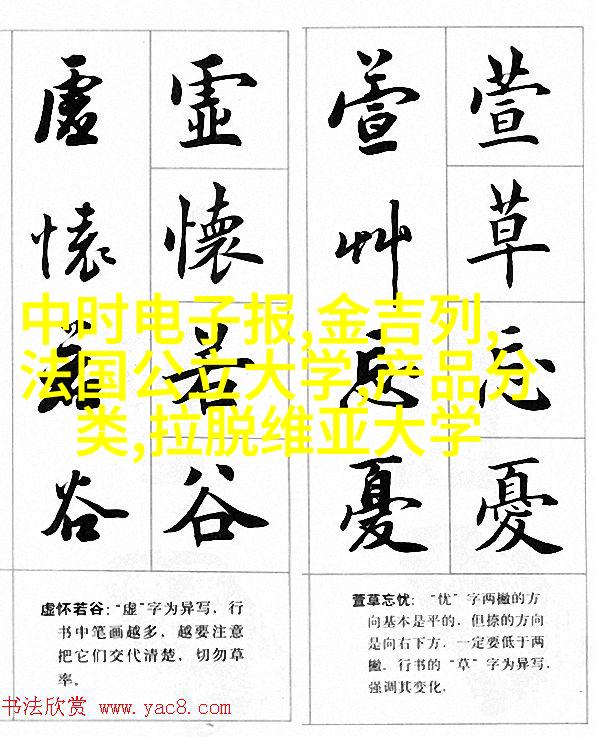 虛懷若谷
虛懷若谷
萱艸忘憂
萱草忘憂
中时电子报,金吉列,
法国公立大学,产品分
类,拉脱维亚大学
虚怀若谷：“虚”字为异写，行
书中笔画越多，越要注意
把它们交代清楚，切勿草
率。
萱草忘忧：“忧”字两撇的方
向基本是平的，但捺的方向
是向右下方，一定要低于两
撇。行书的“草”字为异写，
强调其变化。
书法欣赏 www.yac8.com